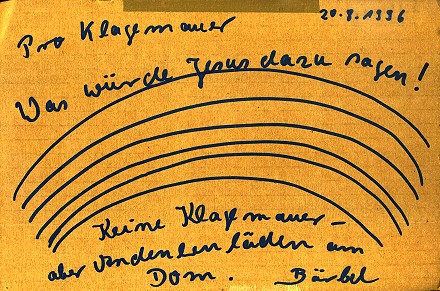 20.9.1996
Pro Klagemauer
Was würde Jesus dazu sagen!
Keine Klagemauer –
aber Andenkenläden am
Dom. Bärbel